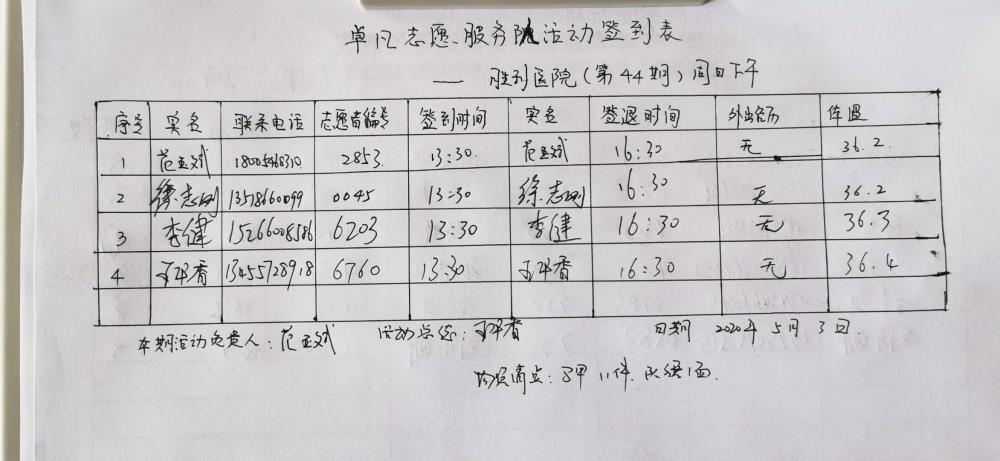 卓凡志愿服务队活动签到表
— 胜利医院(第44期)周日下午
序号 实名 联系电话 志愿者编号 签到时间 实名 签退时间 外出经历 体温
1 范玉斌 2853 13:30. 范玉斌 16:30 无 36.2.
2 徐志刚 13518660099 0045 13:30 徐志刚 16:30 无 36.2
3 李健 6203 13:30 李健 16:30 无 36.3
4 13455728918 6760 13:30 16:30 无 36.4
本期活动负责人:范玉斌 活动总结: 日期 2020年5月3日.
物资清点:马甲11件.队旗1面.